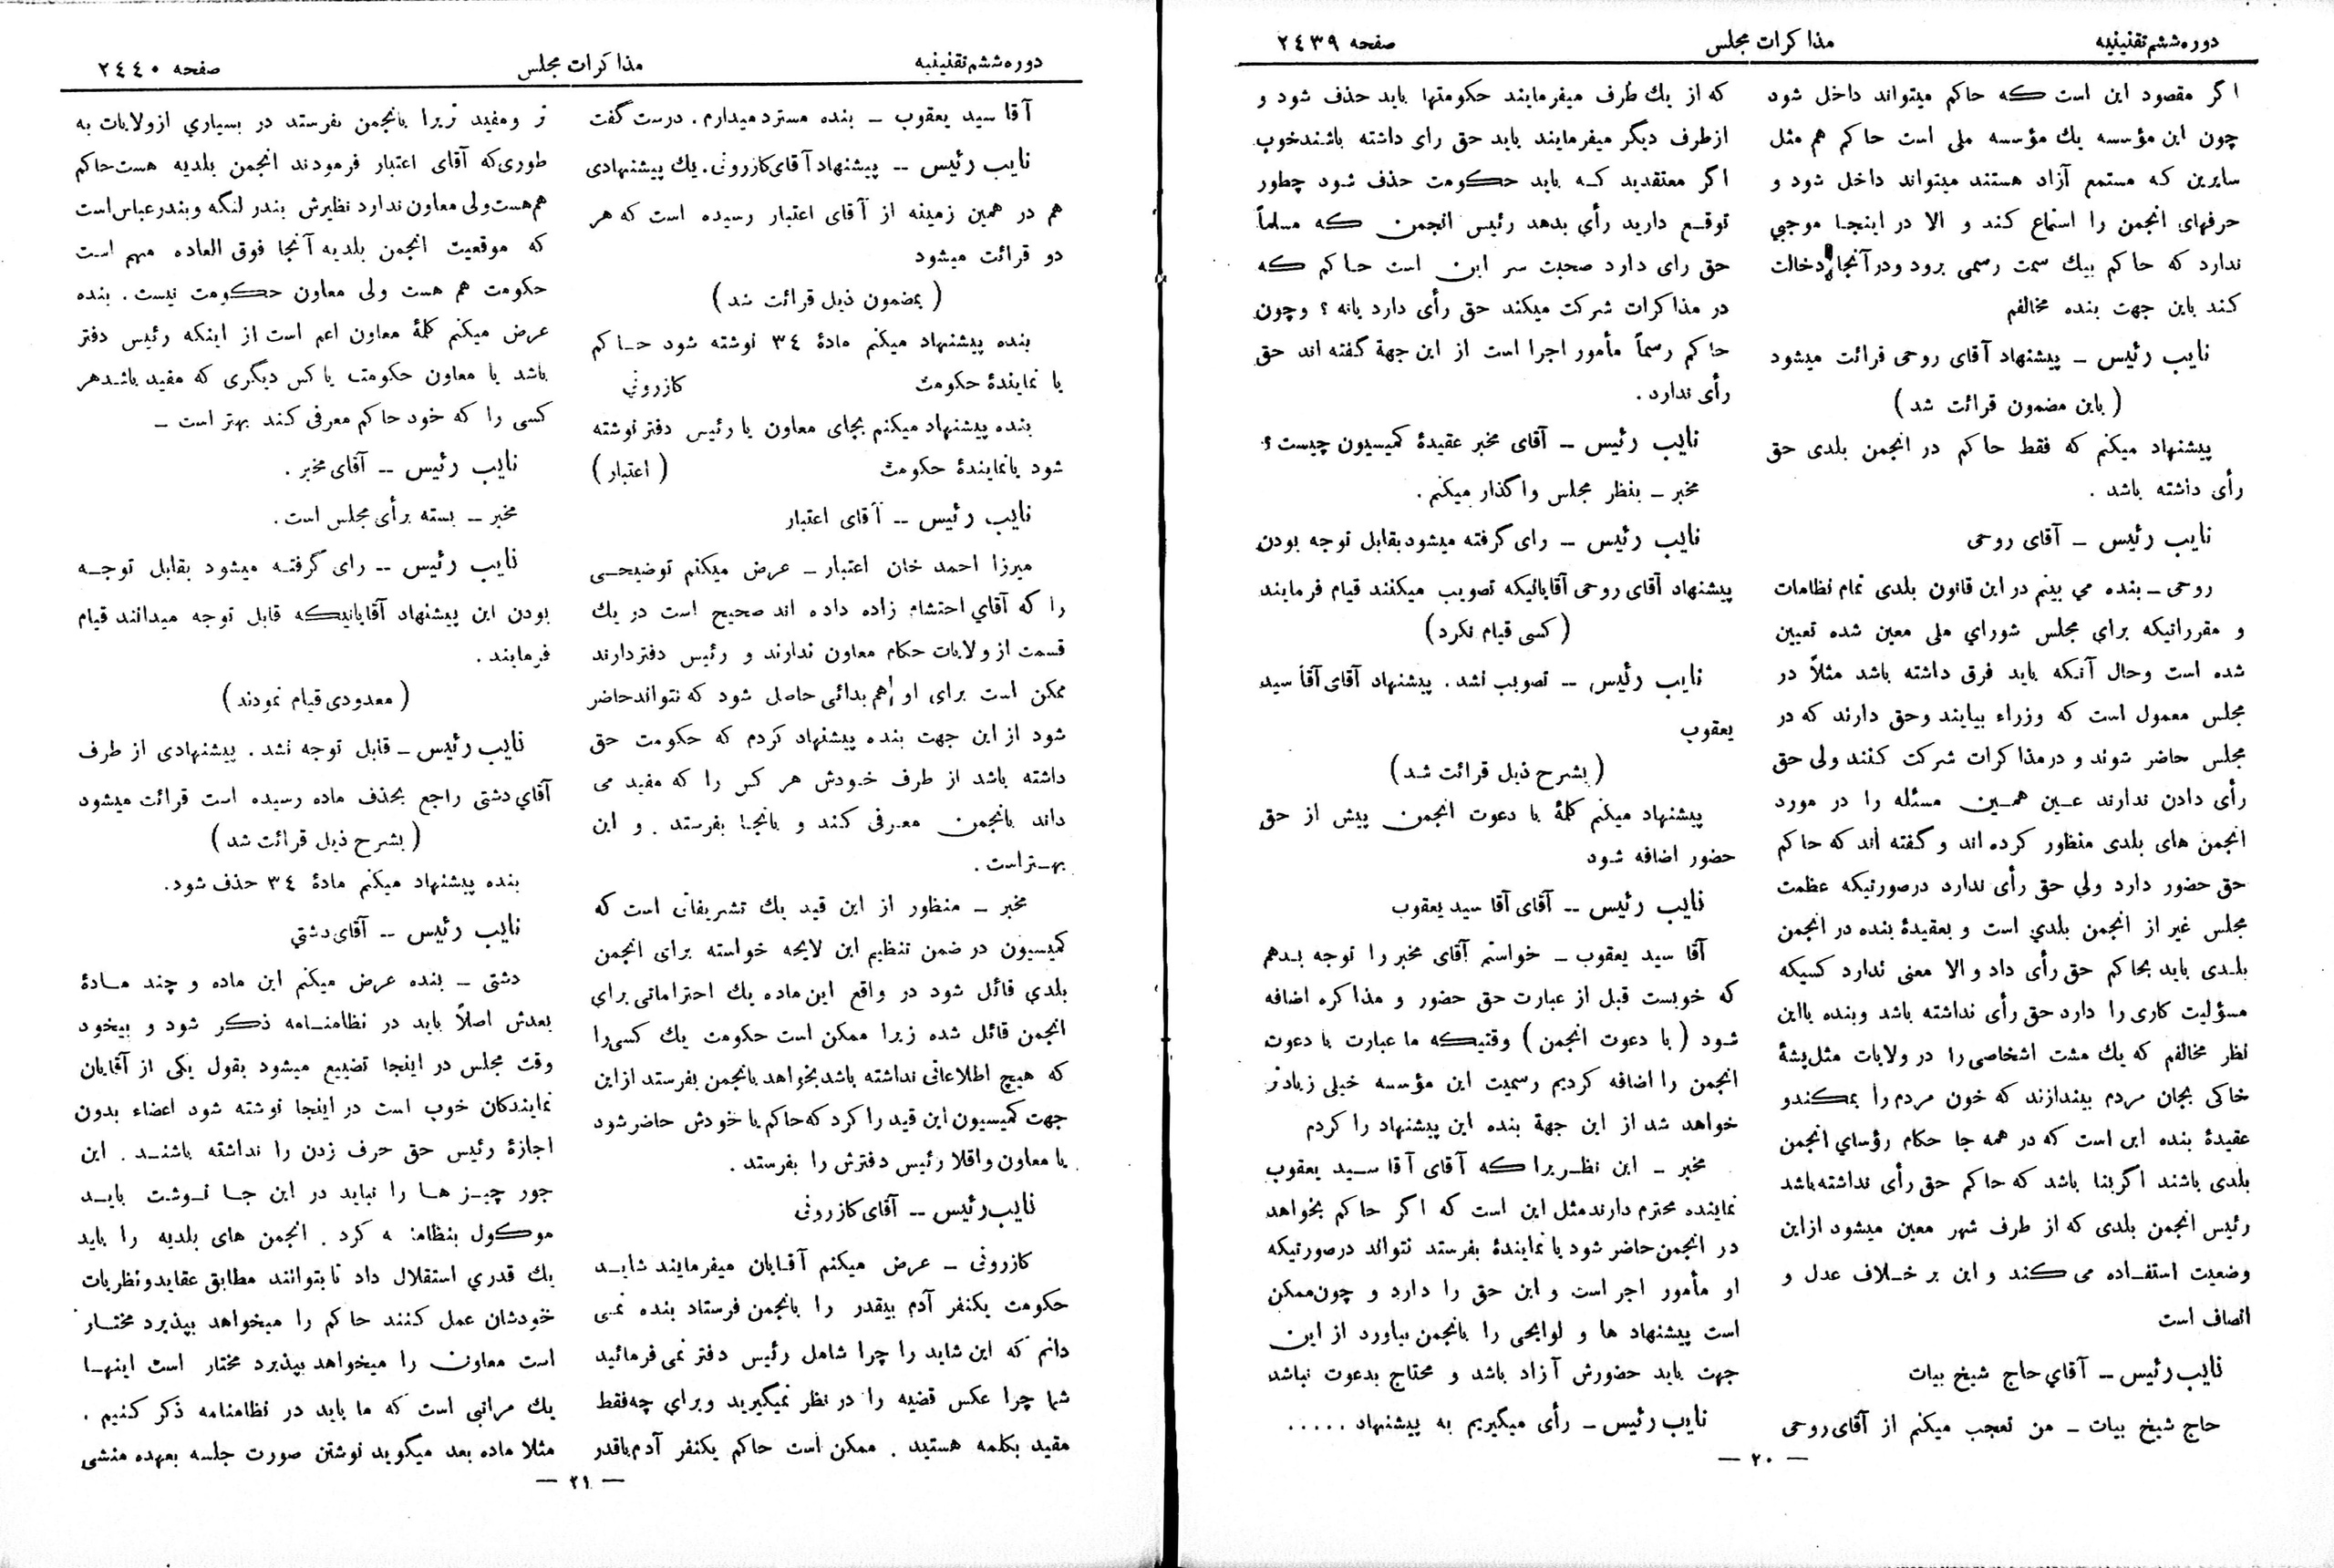 دوره ششم تقنینیه
مذاکرات مجلس
صفحه ۲٤۳۹
اگر مقصود این است که حاکم میتواند داخل شود
چون این مؤسسه یك مؤسسه ملی است حاکم هم مثل
سایرین که مستمع آزاد هستند میتواند داخل شود و
حرفهای انجمن را استماع کند و الا در اینجا موجبي
ندارد که حاکم بیك سمت رسمی برود ودرآنجا دخالت
کند باین جهت بنده مخالفم
نایب رئیس ــ پیشنهاد آقای روحی قرائت میشود
( باین مضمون قرائت شد )
پیشنهاد میکنم که فقط حاکم در انجمن بلدی حق
رأی داشته باشد .
نایب رئیس ــ آقای روحی
روحی ــ بنده مي بینم در این قانون بلدی تمام نظامات
و مقرراتیکه برای مجلس شورای ملی معین شده تعیین
شده است وحال آنکه باید فرق داشته باشد مثلاً در
مجلس معمول است که وزراء بیایند وحق دارند که در
مجلس حاضر شوند و در مذاکرات شرکت کنند ولی حق
رأی دادن ندارند عین همین مسئله را در مورد
انجمن های بلدی منظور کرده اند و گفته اند که حاکم
حق حضور دارد ولي حق رأی ندارد درصورتیکه عظمت
مجلس غیر از انجمن بلدي است و بعقیدۀ بنده در انجمن
بلدی باید بحاکم حق رأی داد و الا معنی ندارد کسیکه
مسؤلیت کاری را دارد حق رأی نداشته باشد وبنده بااین
نظر مخالفم که یك مشت اشخاصی را در ولایات مثل پشۀ
خاکی بجان مردم بیندازند که خون مردم را بمکندو
عقیدۀ بنده این است که در همه جا حکام رؤسای انجمن
بلدی باشند اگر بنا باشد که حاکم حق رأی نداشته باشد
رئیس انجمن بلدی که از طرف شهر معین میشود ازاین
وضعیت استفاده می کند و این بر خلاف عدل و
انصاف است
نایب رئیس ــ آقاي حاج شیخ بیات
حاج شیخ بیات ــ من تعجب میکنم از آقای روحی
که از یك طرف میفرمایند حکومتها باید حذف شود و
ازطرف دیگر میفرمایند باید حق رای داشته باشندخوب
اگر معتقدید که باید حکومت حذف شود چطور
توقع دارید رأی بدهد رئیس انجمن که مسلماً
حق رای دارد صحبت سر این است حاکم که
در مذاکرات شرکت میکند حق رأی دارد یانه ؟ وچون
حاکم رسماً مأمور اجرا است از این جهة گفته اند حق
رأی ندارد .
نایب رئیس ــ آقای مخبر عقیدۀ کمیسیون چیست ؟
مخبر ــ بنظر مجلس واگذار میکنم .
نایب رئیس ــ رای گرفته میشود بقابل توجه بودن
پیشنهاد آقای روحی آقایانیکه تصویب میکنند قیام فرمایند
( کسی قیام نکرد )
نایب رئیس ــ تصویب نشد . پیشنهاد آقای آقا سید
یعقوب
( بشرح ذیل قرائت شد )
پیشنهاد میکنم کلمۀ با دعوت انجمن پیش از حق
حضور اضافه شود
نایب رئیس ــ آقای آقا سید یعقوب
آقا سید یعقوب ــ خواستم آقای مخبر را توجه بدهم
که خوبست قبل از عبارت حق حضور و مذاکره اضافه
شود ( با دعوت انجمن ) وقتیکه ما عبارت با دعوت
انجمن را اضافه کردیم رسمیت این مؤسسه خیلی زیادتر
خواهد شد از این جهة بنده این پیشنهاد را کردم
مخبر ــ این نظریرا که آقای آقا سید یعقوب
نماینده محترم دارند مثل این است که اگر حاکم بخواهد
در انجمن حاضر شود یا نمایندۀ بفرستد نتواند درصورتیکه
او مأمور اجر است و این حق را دارد و چون ممکن
است پیشنهاد ها و لوایحی را بانجمن بیاورد از این
جهت باید حضورش آزاد باشد و محتاج بدعوت نباشد
نایب رئیس ــ رأی میگیریم به پیشنهاد .....
— ۲۰ —
دوره ششم تقنینیه
مذاکرات مجلس
صفحه ۲٤٤۰
آقا سید یعقوب ــ بنده مسترد میدارم . درست گفت
نایب رئیس ــ پیشنهاد آقای کازرونی . یك پیشنهادی
هم در همین زمینه از آقای اعتبار رسیده است که هر
دو قرائت میشود
( بمضمون ذیل قرائت شد )
بنده پیشنهاد میکنم مادۀ ۳٤ نوشته شود حاکم
یا نمایندۀ حکومت کازرونی
بنده پیشنهاد میکنم بجای معاون یا رئیس دفتر نوشته
شود یانمایندۀ حکومت ( اعتبار )
نایب رئیس ــ آقای اعتبار
میرزا احمد خان اعتبار ــ عرض میکنم توضیحی
را که آقاي احتشام زاده داده اند صحیح است در یك
قسمت از ولایات حکام معاون ندارند و رئیس دفتردارند
ممکن است برای او هم بدائی حاصل شود که نتواند حاضر
شود از این جهت بنده پیشنهاد کردم که حکومت حق
داشته باشد از طرف خودش هر کس را که مفید می
داند بانجمن معرفی کند و بانجا بفرستد . و این
بهتراست .
مخبر ــ منظور از این قید یك تشریفاتی است که
کمیسیون در ضمن تنظیم این لایحه خواسته برای انجمن
بلدي قائل شود در واقع این ماده یك احتراماتی برای
انجمن قائل شده زیرا ممکن است حکومت یك کسی را
که هیچ اطلاعاتی نداشته باشد بخواهد بانجمن بفرستد ازاین
جهت کمیسیون این قید را کرد که حاکم یا خودش حاضرشود
یا معاون واقلا رئیس دفترش را بفرستد .
نایب رئیس ــ آقای کازرونی
کازرونی ــ عرض میکنم آقایان میفرمایند شاید
حکومت یکنفر آدم بیقدر را بانجمن فرستاد بنده نمی
دانم که این شاید را چرا شامل رئیس دفتر نمی فرمائید
شما چرا عکس قضیه را در نظر نمیگیرید وبراي چه فقط
مقید بکلمه هستید . ممکن است حاکم یکنفر آدم باقدر
تر ومفید تریرا بانجمن بفرستد در بسیاري ازولایات به
طوری که آقای اعتبار فرمودند انجمن بلدیه هست حاکم
هم هست ولی معاون ندارد نظیرش بندر لنگه و بندر عباس است
که موقعیت انجمن بلدیه آنجا فوق العاده مهم است
حکومت هم هست ولی معاون حکومت نیست . بنده
عرض میکنم کلمۀ معاون اعم است از اینکه رئیس دفتر
باشد یا معاون حکومت یا کس دیگری که مفید باشدهر
کسی را که خود حاکم معرفی کند بهتر است ــ
نایب رئیس ــ آقای مخبر .
مخبر ــ بسته برأی مجلس است .
نایب رئیس ــ رای گرفته میشود بقابل توجه
بودن این پیشنهاد آقایانیکه قابل توجه میدانند قیام
فرمایند .
( معدودی قیام نمودند )
نایب رئیس ــ قابل توجه نشد . پیشنهادی از طرف
آقاي دشتی راجع بحذف ماده رسیده است قرائت میشود
( بشرح ذیل قرائت شد )
بنده پیشنهاد میکنم مادۀ ۳٤ حذف شود.
نایب رئیس ــ آقای دشتي
دشتی ــ بنده عرض میکنم این ماده و چند مادۀ
بعدش اصلاً باید در نظامنامه ذکر شود و بیخود
وقت مجلس در اینجا تضییع میشود بقول یکی از آقایان
نمایندکان خوب است در اینجا نوشته شود اعضاء بدون
اجازۀ رئیس حق حرف زدن را نداشته باشند . این
جور چیز ها را نباید در این جا نوشت باید
موکول بنظامنا ه کرد . انجمن های بلدیه را باید
یك قدري استقلال داد تا بتوانند مطابق عقایدونظریات
خودشان عمل کنند حاکم را میخواهد بپذیرد مختار
است معاون را میخواهد بپذیرد مختار است اینها
یك مراتبی است که ما باید در نظامنامه ذکر کنیم .
مثلا ماده بعد میگوید نوشتن صورت جلسه بعهده منشی
— ۲۱ —